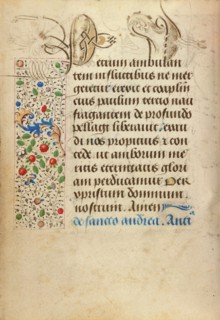 Petrum ambulan
tem in fluctibus ne mer
geretur erexit et coapl̃m
eius paulum tercio nau
fragantem de profundo
pellagi liberauit exau
di nos propitius et con
cede ut amborum me
ritis eternitatis glori
am perducamur Per
xpristum dominum
nostrum. Amen
de sancto andrea. Anti